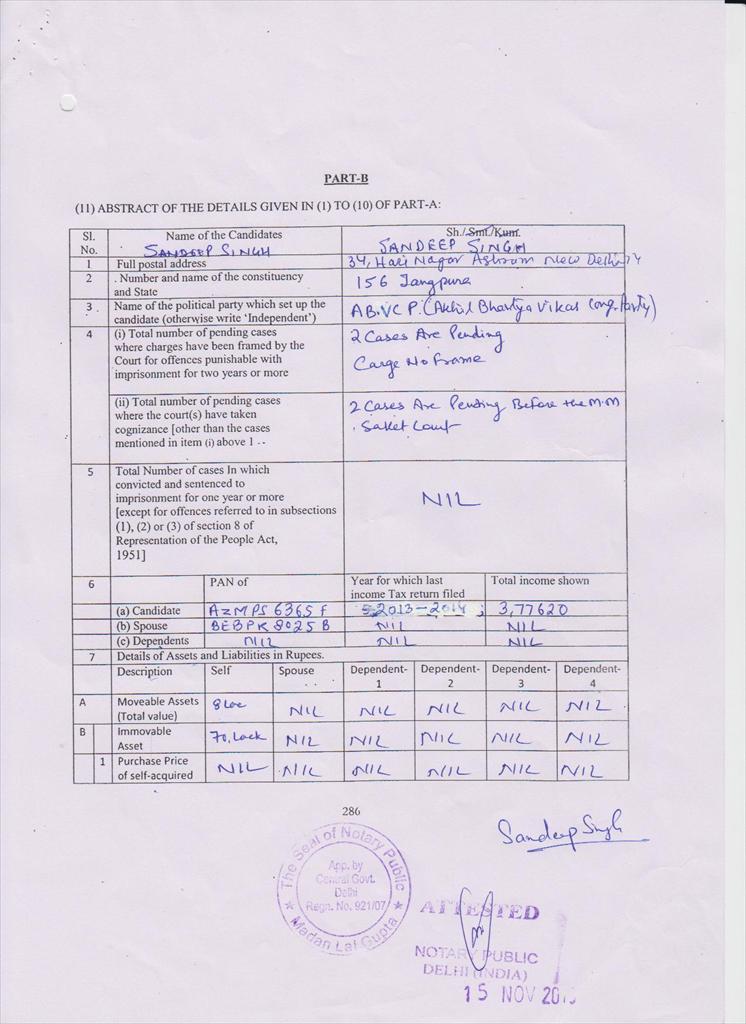 PART-B
(11) ABSTRACT OF THE DETAILS GIVEN IN (1) TO (10) OF PART-A:
Sl. No. Name of the Candidates SANDEEP SINGH Sh./Smt./Kum. SANDEEP SINGH
1 Full postal address 34, Hari Nagar Ashram New Delhi 14
2 . Number and name of the constituency and State 156 Jangpura
3 Name of the political party which set up the candidate (otherwise write 'Independent') AB.VC P. (Akhil Bhartya Vikas Cong. Party)
4 (i) Total number of pending cases
where charges have been framed by the
Court for offences punishable with
imprisonment for two years or more
2 Cases Are Pending
Carge No Frame
(ii) Total number of pending cases
where the court(s) have taken
cognizance [other than the cases
mentioned in item (i) above 1 --
2 Cases Are Pending Before the M.M
. Saket Court
5 Total Number of cases In which
convicted and sentenced to
imprisonment for one year or more
[except for offences referred to in subsections
(1), (2) or (3) of section 8 of
Representation of the People Act,
1951]
NIL
6 PAN of Year for which last income Tax return filed Total income shown
(a) Candidate AZMPS 6365 F 2013-2014 ; 3,77620
(b) Spouse BEBPK 8025 B NIL NIL
(c) Dependents NIL NIL NIL
7 Details of Assets and Liabilities in Rupees.
Description Self Spouse Dependent-1 Dependent-2 Dependent-3 Dependent-4
A Moveable Assets (Total value) 8 Lac NIL NIL NIL NIL NIL
B Immovable Asset 70, Lack NIL NIL NIL NIL NIL
1 Purchase Price of self-acquired NIL NIL NIL NIL NIL NIL
286
Sandeep Singh
The Seal of Notary Public
App. by
Central Govt.
Delhi
Regn. No. 921/07
Madan Lal Gupta
ATTESTED
NOTARY PUBLIC
DELHI (INDIA)
15 NOV